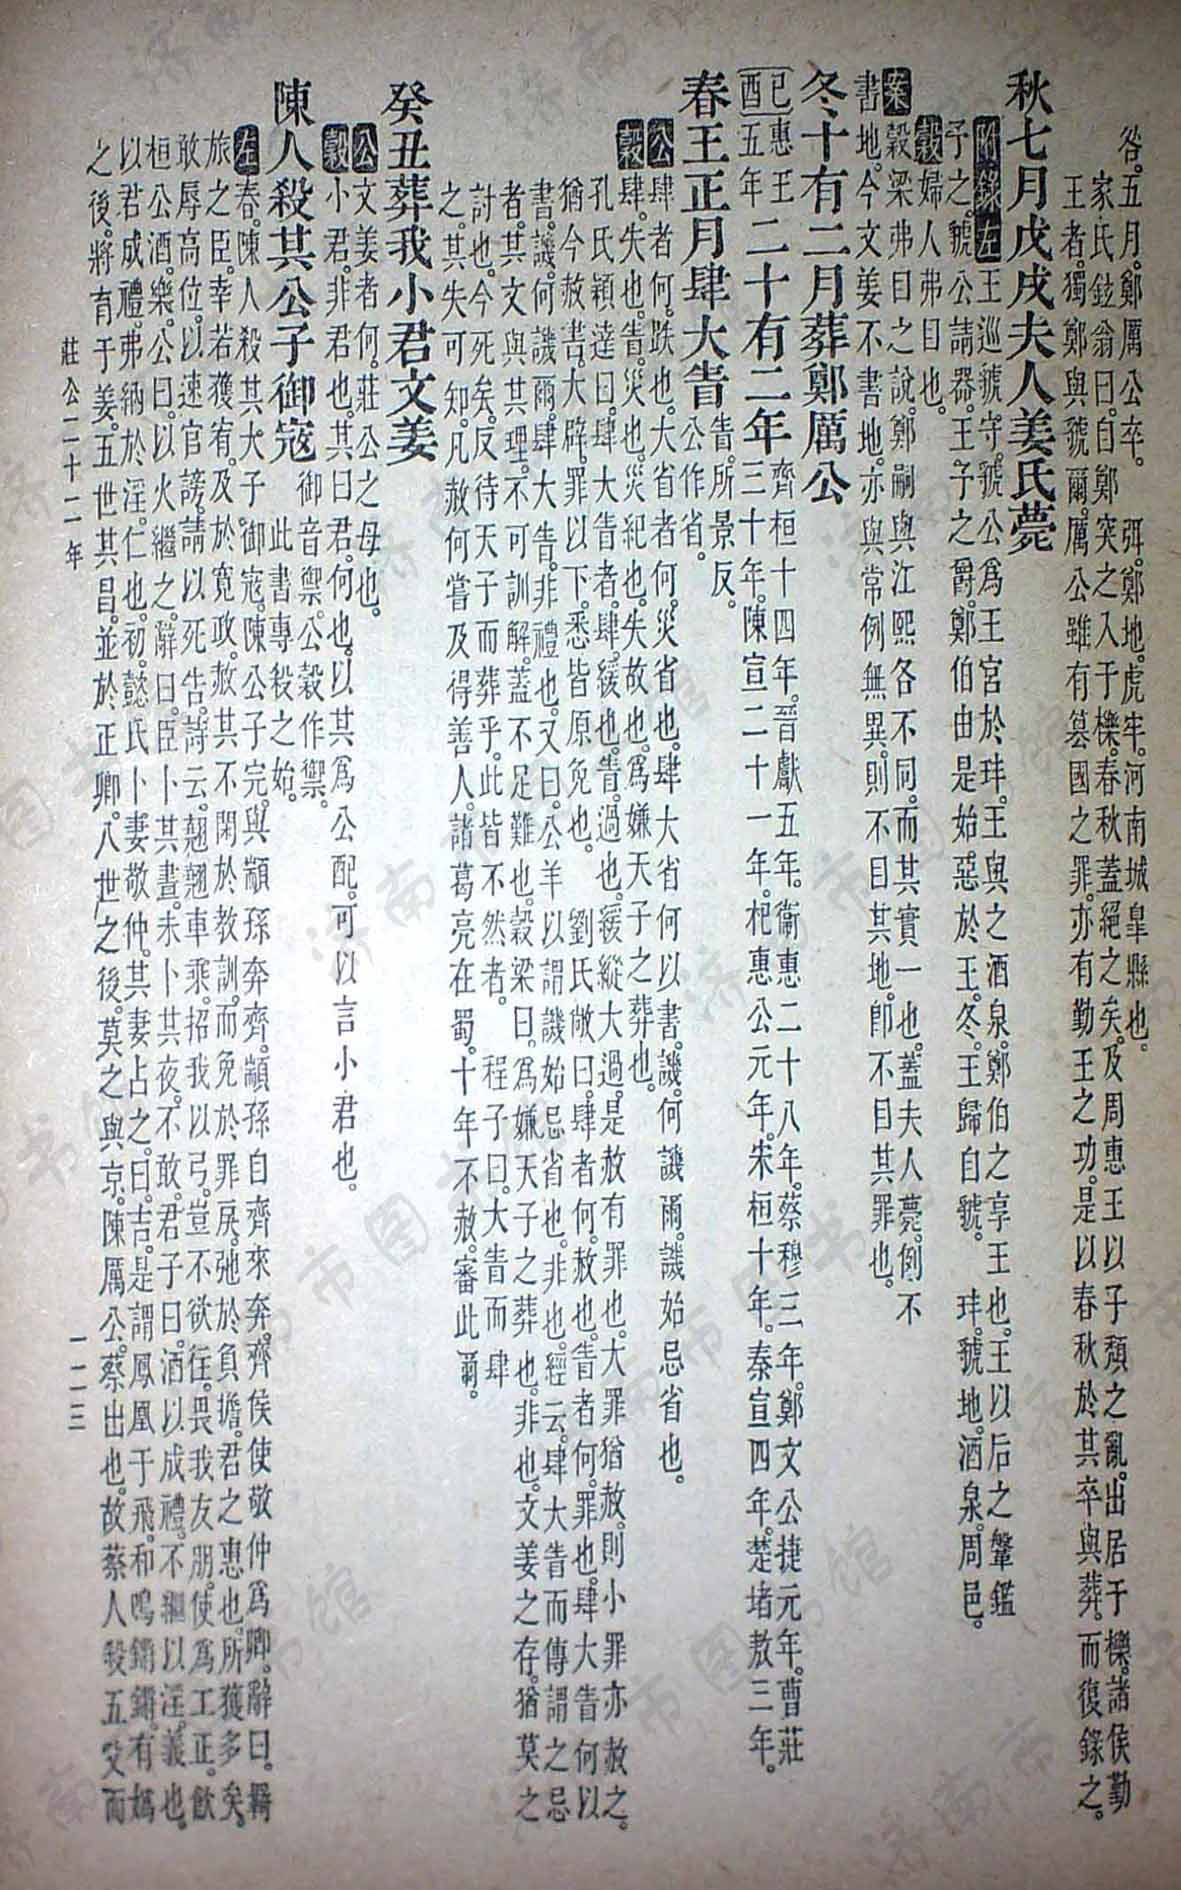 咎。五月。鄭厲公卒。　弭。鄭地。虎牢。河南城皐縣也。
家氏鉉翁曰。自鄭突之入于櫟。春秋蓋絕之矣。及周惠王以子頹之亂。出居于櫟。諸侯勤
王者。獨鄭與虢爾。厲公雖有簒國之罪。亦有勤王之功。是以春秋於其卒與葬。而復錄之。
秋七月戊戌夫人姜氏薨
附錄左王巡虢守。虢公爲王宮於玤。王與之酒泉。鄭伯之享王也。王以后之鞶鑑
子之。虢公請器。王子之爵。鄭伯由是始惡於王。冬。王歸自虢。　玤。虢地。酒泉。周邑。
穀婦人弗目也。
案穀梁弗目之說。鄭嗣與江熙各不同。而其實一也。蓋夫人薨。例不
書地。今文姜不書地。亦與常例無異。則不目其地。卽不目其罪也。
冬十有二月葬鄭厲公
己酉惠王五年二十有二年齊桓十四年。晉獻五年。衞惠二十八年。蔡穆三年。鄭文公捷元年。曹莊
三十年。陳宣二十一年。杞惠公元年。宋桓十年。秦宣四年。楚堵敖三年。
春王正月肆大眚眚。所景反。
公作省。
公肆者何。跌也。大省者何。災省也。肆大省何以書。譏。何譏爾。譏始忌省也。
穀肆。失也。眚。災也。災紀也。失故也。爲嫌天子之葬也。
孔氏穎達曰。肆大眚者。肆。緩也。眚。過也。緩縱大過。是赦有罪也。大罪猶赦。則小罪亦赦之。
猶今赦書。大辟罪以下。悉皆原免也。　劉氏敞曰。肆者何。赦也。眚者何。罪也。肆大眚何以
書。譏。何譏爾。肆大眚。非禮也。又曰。公羊以謂譏始忌省也。非也。經云。肆大眚而傳謂之忌
者。其文與其理。不可訓解。蓋不足難也。穀梁曰。爲嫌天子之葬也。非也。文姜之存。猶莫之
討也。今死矣。反待天子而葬乎。此皆不然者。　程子曰。大眚而肆
之。其失可知。凡赦何嘗及得善人。諸葛亮在蜀。十年不赦。審此爾。
癸丑葬我小君文姜
公文姜者何。莊公之母也。
穀小君。非君也。其曰君。何也。以其爲公配。可以言小君也。
陳人殺其公子御寇御音禦。公穀作禦。
此書專殺之始。
左春。陳人殺其大子御寇。陳公子完。與顓孫奔齊。顓孫自齊來奔。齊侯使敬仲爲卿。辭曰。羇
旅之臣。幸若獲宥。及於寬政。赦其不閑於教訓。而免於罪戾。弛於負擔。君之惠也。所獲多矣。
敢辱高位。以速官謗。請以死告。詩云。翹翹車乘。招我以弓。豈不欲往。畏我友朋。使爲工正。飮
桓公酒。樂。公曰。以火繼之。辭曰。臣卜其晝。未卜其夜。不敢。君子曰。酒以成禮。不繼以淫。義也。
以君成禮。弗納於淫。仁也。初。懿氏卜妻敬仲。其妻占之。曰。吉。是謂鳳凰于飛。和鳴鏘鏘。有嬀
之後。將育于姜。五世其昌。並於正卿。八世之後。莫之與京。陳厲公。蔡出也。故蔡人殺五父而
莊公二十二年
一一三